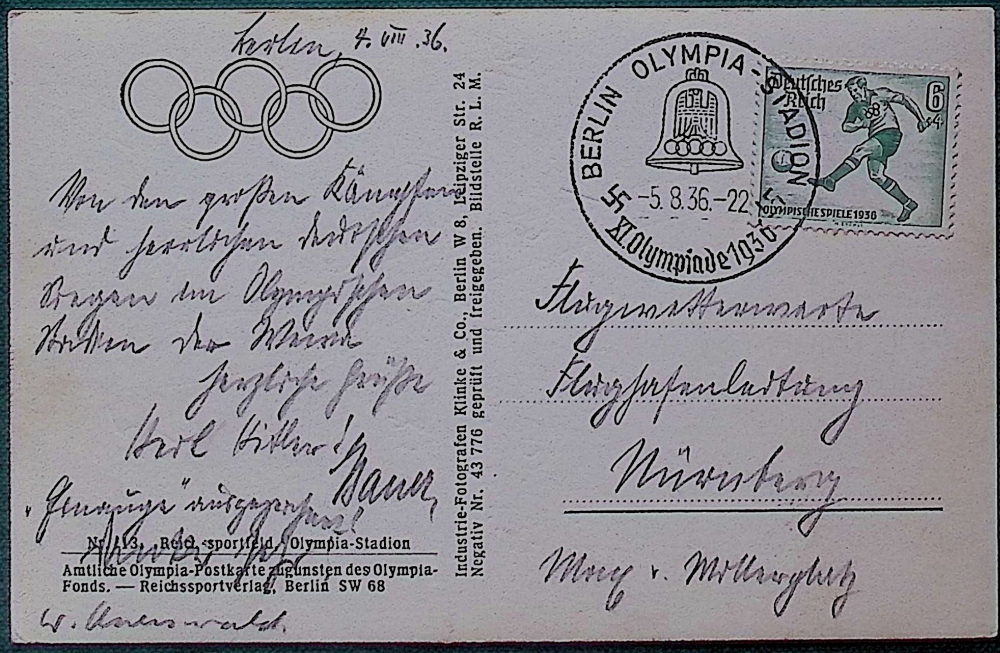 Berlin, 4. VIII. 36.
Von den großen Kämpfen
und herrlichen deutschen
Siegen im Olympischen
Stadion der
herzliche Grüße
Heil Hitler!
Bauer
ausgezeichnet!
Nr. 113. Reichssportfeld, Olympia-Stadion
Amtliche Olympia-Postkarte zugunsten des Olympia-
Fonds. — Reichssportverlag, Berlin SW 68
Industrie-Fotografen Klinke & Co., Berlin W 8, Leipziger Str. 24
Negativ Nr. 43 776 geprüft und freigegeben. Bildstelle R. L. M.
BERLIN OLYMPIA-STADION
-5.8.36.-22
XI. Olympiade 1936
Deutsches
Reich
6
+4
88
OLYMPISCHE SPIELE 1936
Flugwetterwarte
Flughafenleitung
Nürnberg